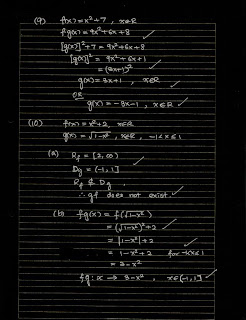 (9) f(x) = x² + 7 , x∈R
fg(x) = 9x² + 6x + 8
[g(x)]² + 7 = 9x² + 6x + 8
[g(x)]² = 9x² + 6x + 1
= (3x+1)²
g(x) = 3x + 1 , x∈R
OR
g(x) = -3x-1 , x∈R
(10) f(x) = x² + 2, x∈R
g(x) = √1-x² , x∈R, -1<x≤1
(a) Rf = [2, ∞)
Dg = (-1, 1]
Rf ⊄ Dg
∴ gf does not exist.
(b) fg(x) = f(√1-x²)
= (√1-x²)² + 2
= |1-x²| + 2
= 1-x² + 2 for -1<x≤1
= 3-x²
fg : x → 3-x² , x∈(-1, 1]